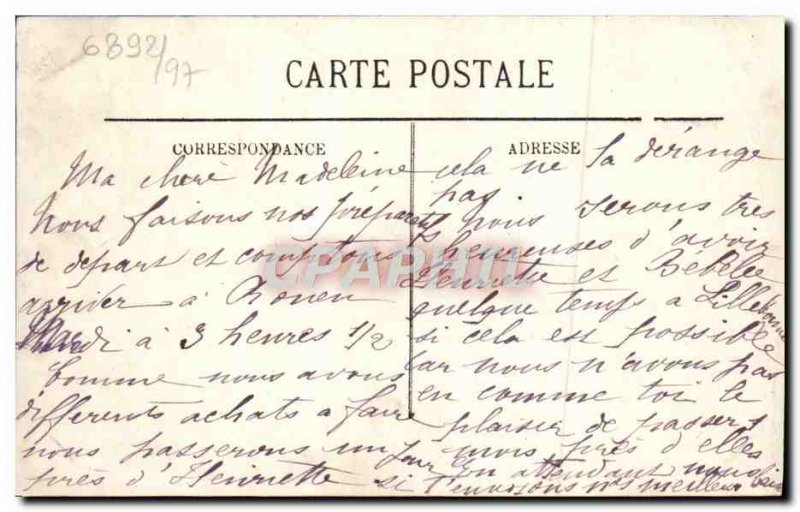 6892/97
CARTE POSTALE
CORRESPONDANCE
ADRESSE
Ma chère Madeleine
Nous faisons nos préparatifs
de départ et comptons
arriver à Rouen
à 3 heures 1/2
Comme nous avons
différents achats a faire
nous passerons un jour
près d'Henriette si
cela ne la dérange
pas
Nous serons très
heureuses d'avoir
Henriette et Bébé
quelque temps a Lillebonne
si cela est possible
Car nous n'avons pas
eu comme toi le
plaisir de passer 1
mois près d'elles
En attendant nous
t'envoyons nos meilleurs
CPAPHIL